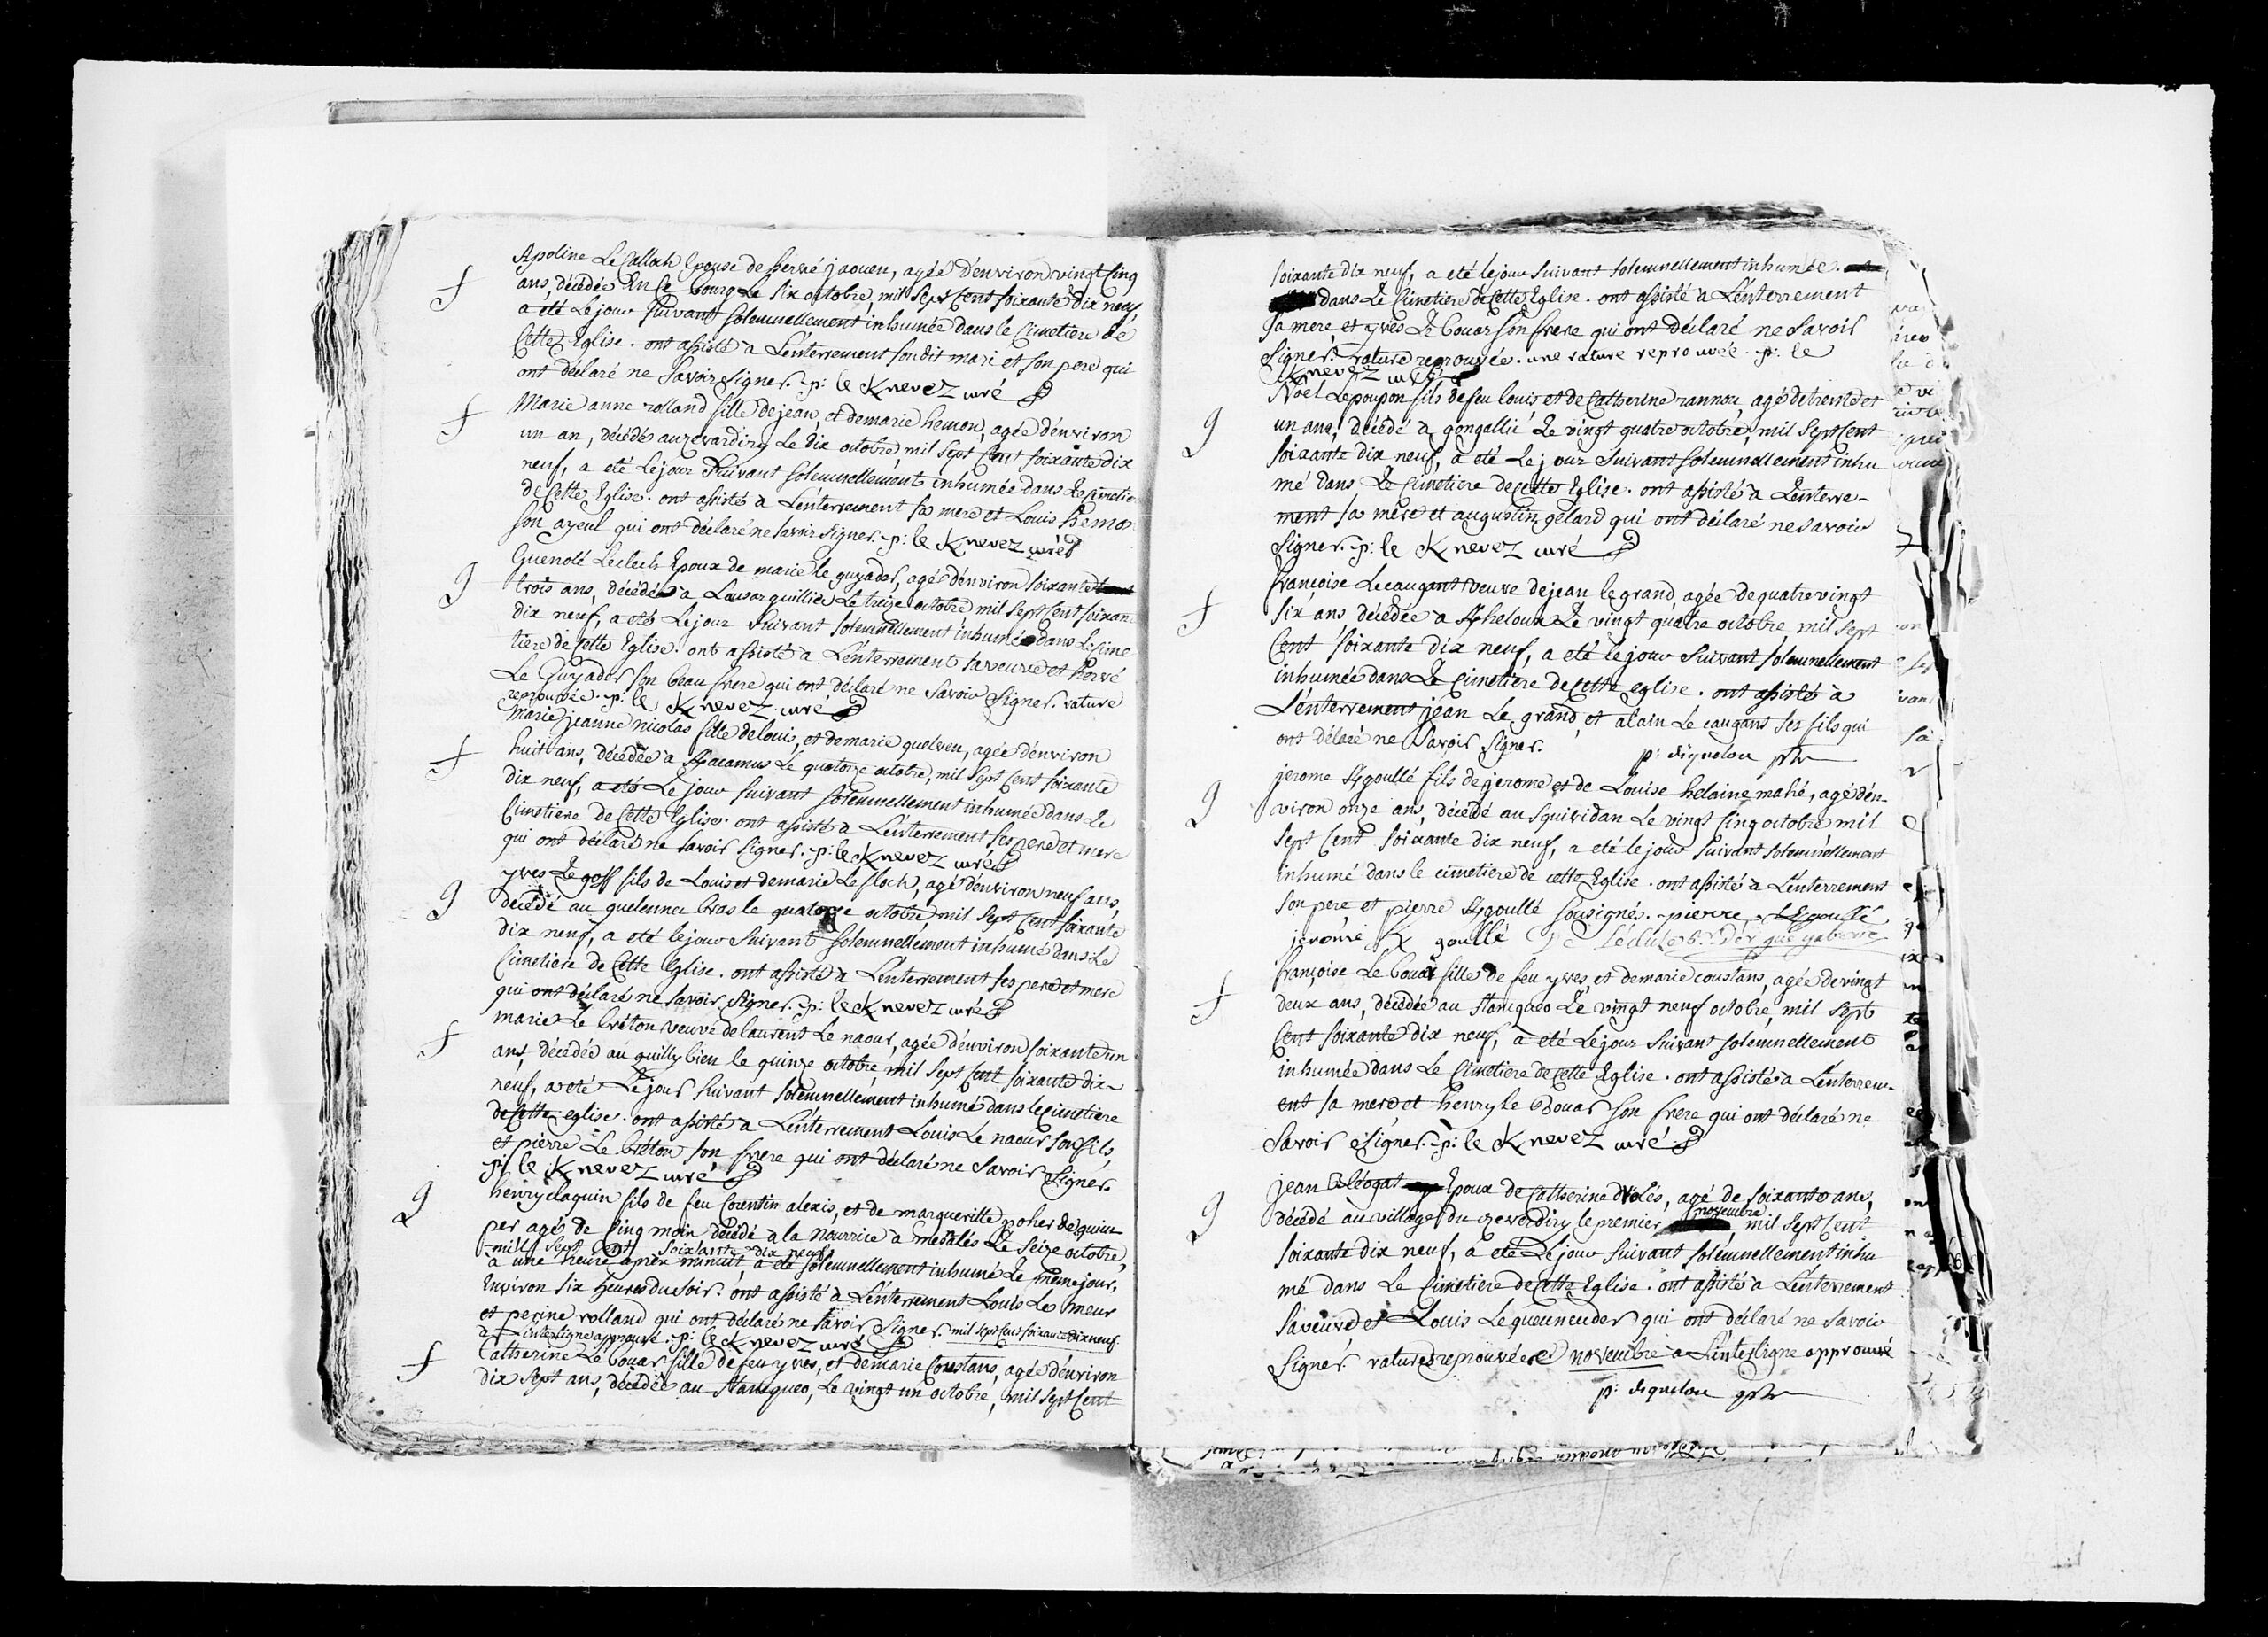 Apoline Le Calloch Epouse de hervé jaouen, agée d'environ vingt cinq
f
ans, décédée En ce bourg Le six octobre, mil sept cent soixante dix neuf,
a été Le jour suivant solemnellement inhumée dans le Cimetiere de
Cette Eglise. ont assisté a L'enterrement son dit mari et son pere qui
ont déclaré ne savoir signer. p: le Knevez curé
f
Marie anne rolland fille de jean, et de marie hemon, agée d'environ
un an, décédée au Le dix octobre, mil sept cent soixante dix
neuf, a été Le jour suivant solemnellement inhumée dans Le Cimetie
de Cette Eglise. ont assisté a L'enterrement sa mere et Louis hemon
son ayeul qui ont déclaré ne savoir signer. p: le Knevez curé
Guenolé Le clech Epoux de marie le guyader, agé d'environ soixante
g
trois ans, décédé a Le treize octobre mil sept cent soixan
dix neuf, a été Le jour suivant solemnellement inhumé dans Le cime
tiere de Cette Eglise. ont assisté a L'enterrement sa veuve et hervé
Le Guyader son beau frere qui ont déclaré ne savoir signer. rature
reprouvée. p: le Knevez curé
Marie jeanne nicolas fille de louis, et de marie quelven, agée d'environ
f
huit ans, décédée a Le quatorze octobre, mil sept cent soixante
dix neuf, a été Le jour suivant solemnellement inhumée dans Le
Cimetiere de Cette Eglise. ont assisté a L'enterrement ses pere et mere
qui ont déclaré ne savoir signer. p: le Knevez curé
yves Le goff fils de Louis et de marie Le floch, agé d'environ neuf ans,
g
décédé au quelennec bras le quatorze octobre, mil sept cent soixante
dix neuf, a été le jour suivant solemnellement inhumé dans Le
Cimetiere de Cette Eglise. ont assisté a L'enterrement ses pere et mere
qui ont déclaré ne savoir signer. p: le Knevez curé
marie Le bréton veuve de laurent Le naour, agée d'environ soixante un
f
ans, décédée au quillybien le quinze octobre, mil sept cent soixante dix
neuf, a été Le jour suivant solemnellement inhumé dans le cimetiere
de cette eglise. ont assisté a L'enterrement Louis Le naour son fils,
et pierre Le bréton son frere qui ont déclaré ne savoir signer.
p: le Knevez curé
g
henry claquin fils de feu Corentin alexis, et de marguerite poher de quim
per agé de cinq mois, décédé a la nourrice a mesalés Le seize octobre,
mil sept cent soixante dix neuf
a une heure apres minuit, a été solemnellement inhumé Le même jour,
Environ six heures du soir. ont assisté a L'enterrement Louis Le meur
et perine rolland qui ont déclaré ne savoir signer. mil sept cent soixante dix neuf
a interligne approuvé. p: le Knevez curé
f
Catherine Le bouar fille de feu yves, et de marie Coustans, agée d'environ
dix sept ans, décédée au Stanqueo, Le vingt un octobre, mil sept cent
soixante dix neuf, a été le jour suivant solemnellement inhumée.
dans Le Cimetiere de Cette Eglise. ont assisté a L'enterrement
sa mere et yves Le bouar son frere qui ont déclaré ne savoir
signer. rature reprouvée. une rature reprouvée. p: le
Knevez curé
Noël Le poupon fils de feu louis et de Catherine rannou, agé de trente et
g
un ans, décédé a gongallic Le vingt quatre octobre, mil sept cent
soixante dix neuf, a été Le jour suivant solemnellement inhu
mé dans Le Cimetiere de cette Eglise. ont assisté a L'enterre-
ment sa mere et augustin gelard qui ont déclaré ne savoir
signer. p: le Knevez curé
françoise Le caugant veuve de jean le grand, agée de quatre vingt
f
six ans décédée a Le vingt quatre octobre, mil sept
Cent soixante dix neuf, a été le jour suivant solemnellement
inhumée dans Le Cimetiere de Cette eglise. ont assisté a
L'enterrement jean Le grand, et alain Le caugant ses fils qui
ont délaré ne savoir signer. p: diquelou
jerome Kgoullé fils de jerome et de Louise helaine mahé, agé d'en-
g
viron onze ans, décédé au squividan Le vingt cinq octobre mil
sept cent soixante dix neuf, a été le jour suivant solemnellement
inhumé dans le cimetiere de cette Eglise. ont assisté a L'enterrement
son pere et pierre Kgoullé sousignés. pierre Kgoullé
jerome Kgoullé
françoise Le bouar fille de feu yves, et de marie coustans, agée de vingt
f
deux ans, décédée au Stanqueo Le vingt neuf octobre, mil sept
Cent soixante dix neuf, a été Le jour suivant solemnellement
inhumée dans Le Cimetiere de Cette Eglise. ont assisté a L'enterrem-
ent sa mere et henry le Bouar son frere qui ont déclaré ne
savoir signer. p: le Knevez curé
jean Bléogat Epoux de Catherine agé de soixante ans,
g
novembre
décédé au village du le premier mil sept cent
soixante dix neuf, a été Le jour suivant solemnellement inhu
mé dans Le Cimetiere de Cette Eglise. ont assisté a L'enterrement
sa veuve et Louis Le queneuder qui ont déclaré ne savoir
signer. ratures reprouvées novembre a L'interligne approuvé
p: diquelou